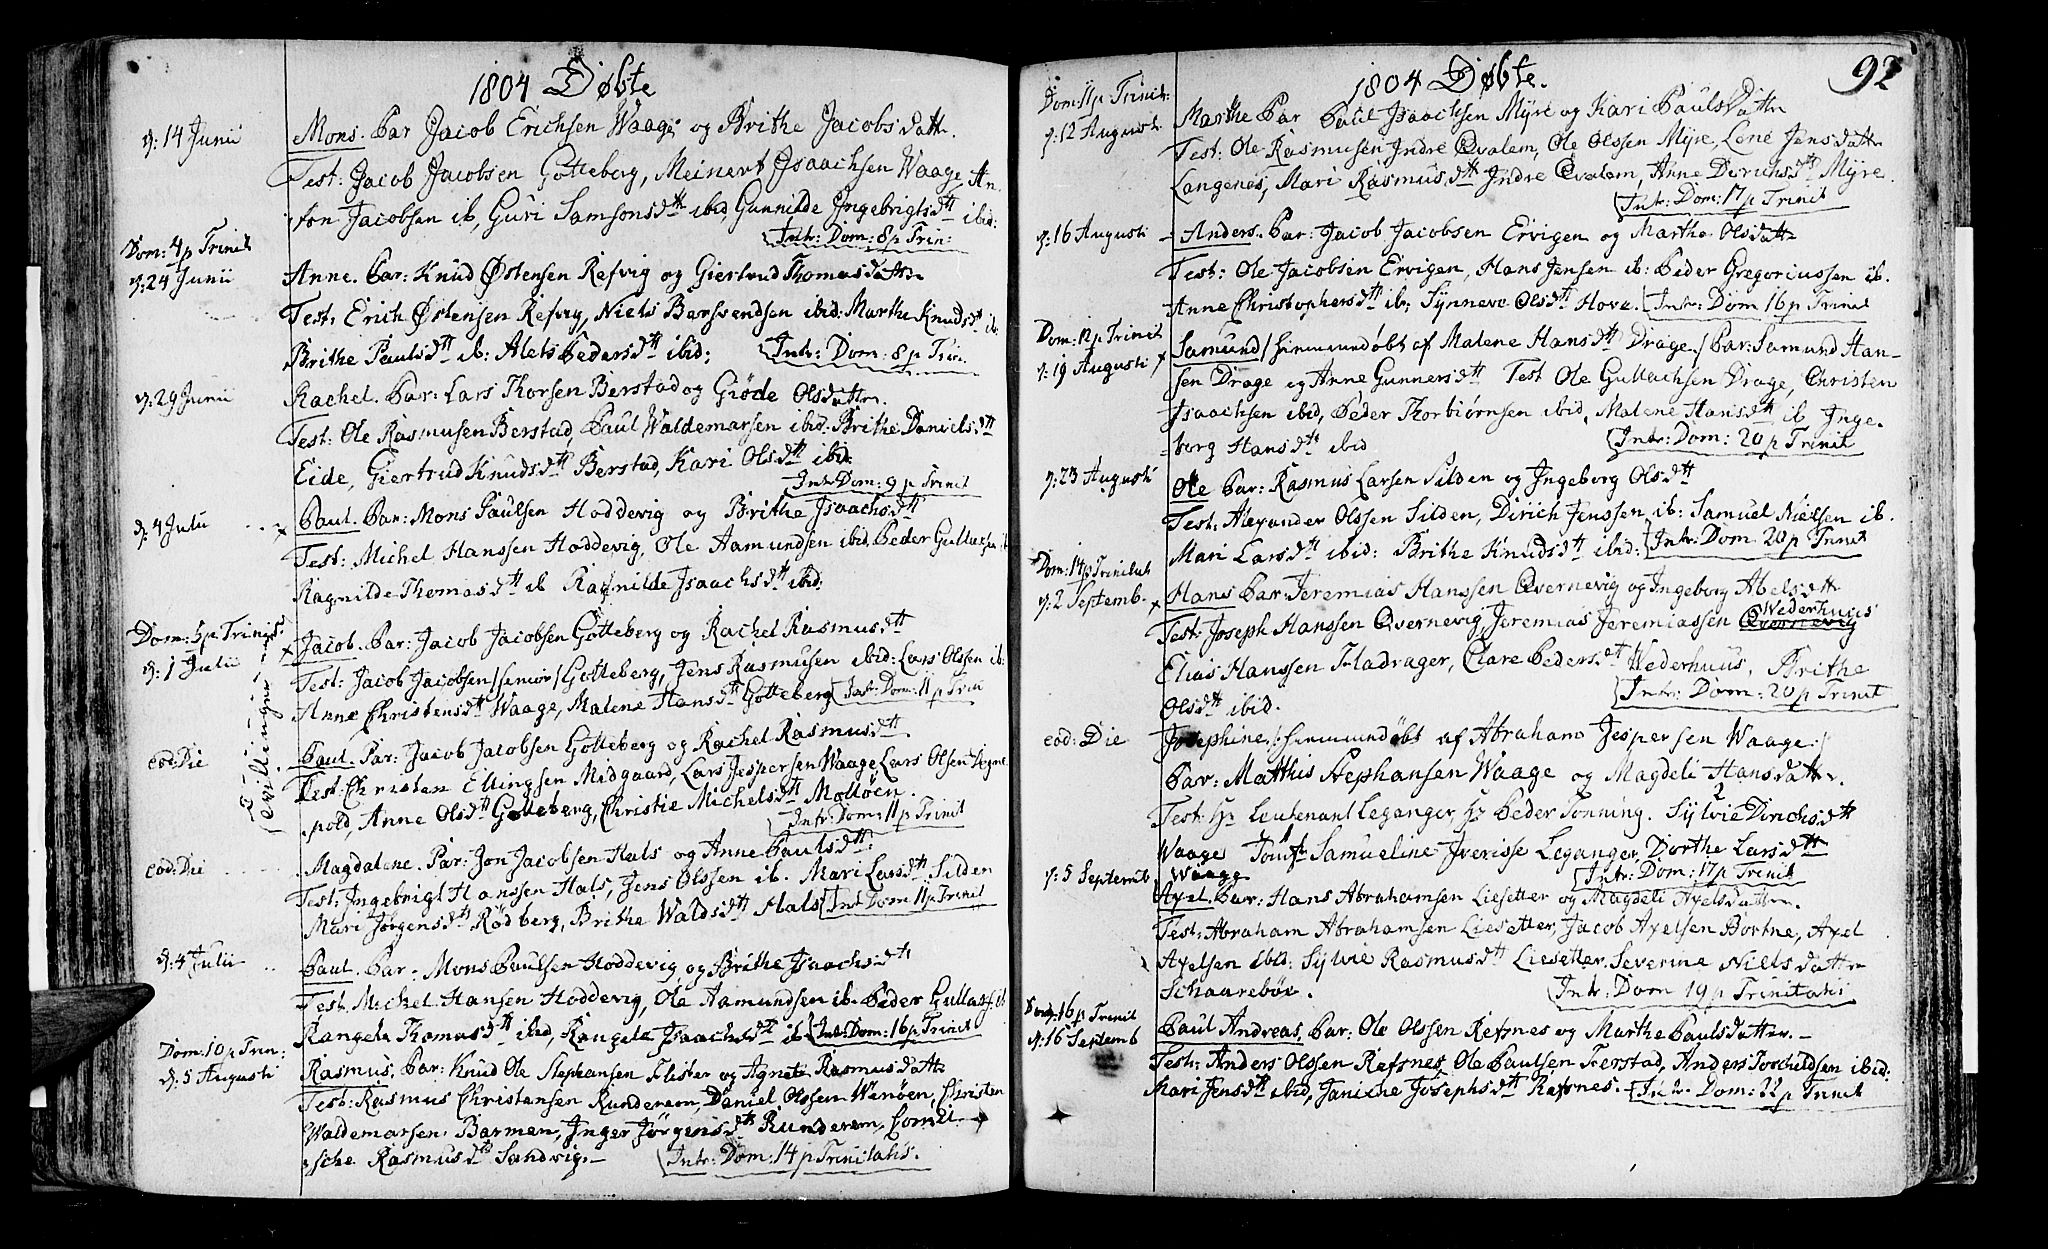 1804 Døbte
d: 14 Junii
Mons. Par Jacob Erichsen Waage og Brithe Jacobsdattr.
Test: Jacob Jacobsen Gotteberg, Meinert Isaachsen Waage, An-
ton Jacobsen ib, Guri Samsonsdttr ibid, Gunnilde Ingebrigtsdttr ibid:
Intr: Dom: 8 p Trin:
Dom: 4 p Trinit
d: 24 Junii
Anne. Par: Knud Østensen Refvig og Giertrud Thomasdattr
Test: Erich Østensen Refvig, Niels Barsvendsen ibid: Marthe Knudsdtt ib:
Brithe Paulsdtt ib: Alets Pedersdtt ibid; Intr: Dom: 8 p Trin.
d: 29 Junii
Rachel. Par: Lars Thorsen Berstad og Giøde Olsdattr.
Test: Ole Rasmusen Berstad, Paul Waldemarsen ibid: Brithe Danielsdtt
Eide, Giertrud Knudsdtt Berstad, Kari Olsdtt ibid:
Intr Dom: 9 p Trinit
d: 4 Julii
Paul. Par: Mons Paulsen Hoddevig og Brithe Isaachsdtt
Test: Michel Hanssen Hoddevig, Ole Aamundsen ibid, Peder Gullachsen ib
Ragnilde Thomasdtt ib Ragnilde Isaachsdtt ibid:
Dom: 5 p Trinit:
d: 1 Julii
Tvillinger
Jacob. Par: Jacob Jacobsen Gotteberg og Rachel Rasmusdtt
Test: Jacob Jacobsen /senior/ Gotteberg, Jens Rasmusen ibid: Lars Olssen ib:
Anne Christensdtt Waage, Malene Hansdtt Gotteberg Intr: Dom: 11 p Trin
eod: Die
Paul. Par: Jacob Jacobsen Gotteberg og Rachel Rasmusdtt
Test: Christen Ellingsen Midgaard, Lars Jespersen Waage, Lars Olsen
pold, Anne Olsdtt Gotteberg, Christie Michelsdtt Molløen.
Intr: Dom: 11 p Trinit
eod: Die
Magdalene. Par: Jon Jacobsen Hals og Anne Paulsdtt:
Test: Ingebrigt Hanssen Hals, Jens Olssen ib. Mari Larsdtt Silden
Mari Jørgensdtt Rødberg, Brithe Waldsdtt Hals Intr Dom 11 p Trinit
d: 4 Julii
Paul. Par. Mons Paulsen Hoddevig og Brithe Isaachsdtt
Test. Michel Hansen Hoddevig, Ole Aamundsen ib. Peder Gullachs: ib
Rangela Thomasdtt ibid, Rangela Isaachsdtt ib Intr: Dom: 16 p Trinit
Dom: 10 p Trin:
d: 5 Augusti
Rasmus, Par: Knud Ole Stephansen Flister og Agnete Rasmusdattr
Test: Rasmus Christansen Runderem, Daniel Olssen Werøen, Christen
Waldemarsen Barmen, Inger Jørgensdtt Runderem,
sche Rasmusdtt Sandvig. Intr: Dom: 14 p Trinitatis.
92
1804 Døbte.
Dom: 11 p: Trinit:
d: 12 Augusti.
Marthe Par Paul Isaachsen Myre og Kari Paulsdattr
Test: Ole Rasmusen Indre Qvalem, Ole Olssen Myre, Lene Jensdattr
Langenes, Mari Rasmusdtt Indre Qvalem, Anne Dirichsdtt Myre.
Intr: Dom: 17 p Trinit
d: 16 Augusti
Anders. Par: Jacob Jacobsen Ervigen og Marthe Olsdattr
Test: Ole Jacobsen Ervigen, Hans Jensen ib: Peder Gregoriussen ib.
Anne Christophersdtt ib; Synneve Olsdtt Hove. Intr: Dom 16 p Trinit
Dom: 12 p Trinit
d: 19 Augusti
Samund /hiemmedøbt af Malene Hansdtt Drage./ Par: Samund Han-
sen Drage og Anne Gunnersdtt Test Ole Gullachsen Drage, Christen
Isaachsen ibid, Peder Thorbiørnsen ibid, Malene Hansdtt ib Inge-
borg Hansdtt ibid
Intr: Dom: 20 p Trinit
d: 23 Augusti
Ole Par: Rasmus Larsen Silden og Ingeborg Olsdtt
Test: Alexander Olssen Silden, Dirich Jenssen ib: Samuel Nielsen ib.
Mari Larsdtt ibid: Brithe Knudsdtt ibid: Intr: Dom 20 p Trinit
Dom: 14 p Trinitat
d: 2 Septemb.
Hans Par: Jeremias Hanssen Qvernevig og Ingeborg Abelsdttr
Test: Joseph Hanssen Qvernevig, Jeremias Jeremiassen Qvernevig Wederhuus
Elias Hanssen Fladrager, Clare Pedersdtt Wederhuus, Brithe
Olsdtt ibid.
Intr: Dom: 20 p Trinit
eod: Die
Josephine /:hiemmedøbt af Abraham Jespersen Waage:/
Par: Matthis Stephansen Waage og Magdeli Hansdattr.
Test: Hr Leutenant Leganger, Hr Peder Tonning. Sylvie Dirichsdtt
Waage Jomfr Samueline Iverisse Leganger, Dorthe Larsdtt
Waage
Intr: Dom: 17 p Trinit
d: 5 Septemb
Axel. Par: Hans Abrahamsen Liesetter og Magdeli Axelsdattr.
Test: Abraham Abrahamsen Liesetter, Jacob Axelsen Bortne, Axel
Axelsen ibid: Sylvie Rasmusdtt Liesetter. Severine Nielsdattr
Schaarebøe.
Intr: Dom 19 p Trinitatis
Dom: 16 p Trinit
d: 16 Septemb
Paul Andreas, Par: Ole Olssen Refsnes og Marthe Paulsdatter.
Test: Anders Olssen Refsnes, Ole Paulsen Ferstad, Anders Torchildsen ibid:
Mari Jensdtt ibid, Janiche Josephsdtt Refsnes. Intr. Dom: 22 p Trinit